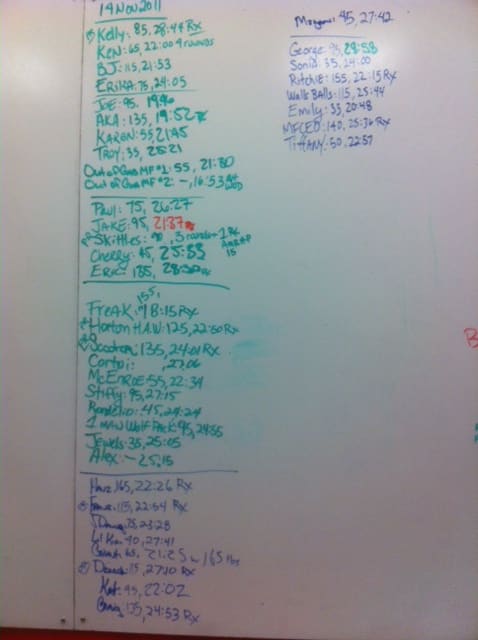 14 Nov 2011
Kelly: 85, 28:44 Rx
Ken: 65, 22:00 4 rounds
BJ: 115, 21:53
Erika: 75, 24:05
Joe: 95, 19:46
AKA: 135, 19:52 Rx
Karen: 55, 21:45
Troy: 35, 25:21
Out of Cam MF #1: 55, 21:30
Out of Cam MF #2: -, 16:53
Paul: 75, 26:27
Jake: 95, 21:37 Rx
Skittles: 90, 3 rounds
AMRAP
15
Cherry: 45, 25:33
Eric: 135, 28:30
155,
Freak: 18:15 Rx
Horton H.A.W: 125, 22:50 Rx
135, 24:01 Rx
, 27:06
McEnroe: 55, 22:34
Stiffy: 95, 27:15
45, 24:24
1 Man Wolf Pack: 95, 24:55
Jewels: 35, 25:05
Alex: - 25:15
165, 22:26 Rx
115, 22:54 Rx
Doug: 75, 23:28
40, 27:41
65, 21:25 165 lbs
115, 27:10 Rx
Kat: 95, 22:02
Craig: 135, 24:53 Rx
Morgan: 45, 27:42
George: 95, 28:58
Sonia: 35, 24:00
Ritchie: 155, 22:15 Rx
Walls Balls: 115, 25:44
Emily: 33, 20:48
MFCEO: 140, 25:36 Rx
Tiffany: 50, 22:57
B